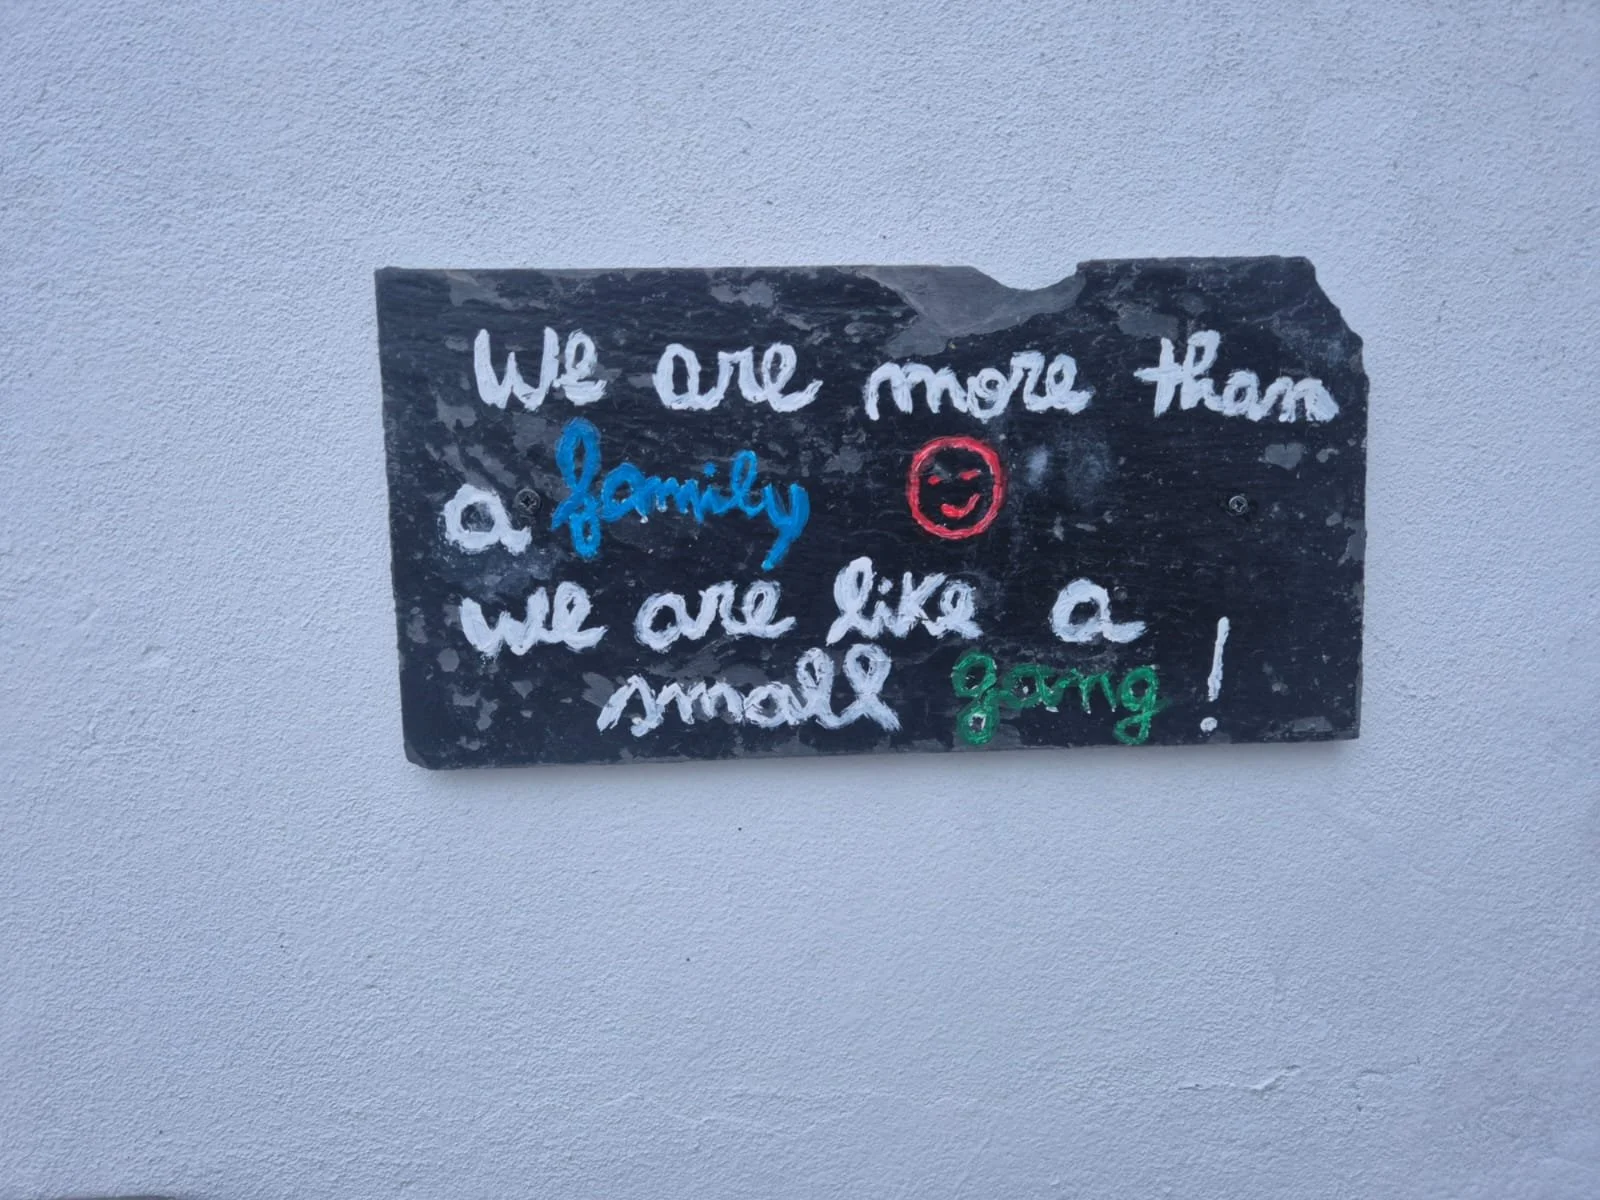 We are more than
a family
we are like a
small gang !